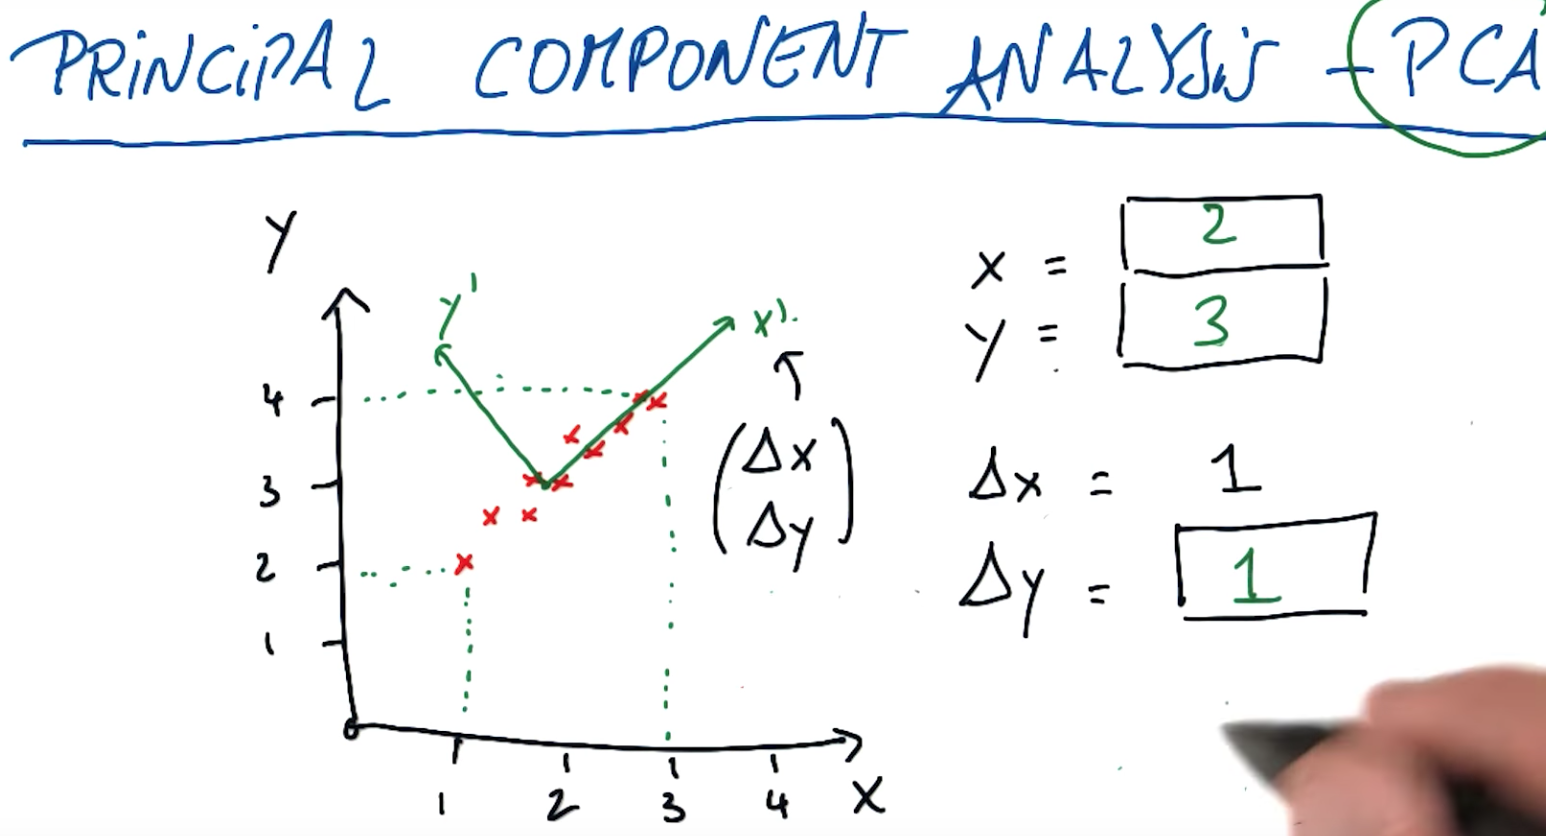 PRINCIPAL COMPONENT ANALYSIS - PCA
Y
y'
x'
4
3
2
1
0
1 2 3 4 X
(Δx
Δy)
x = 2
y = 3
Δx = 1
Δy = 1